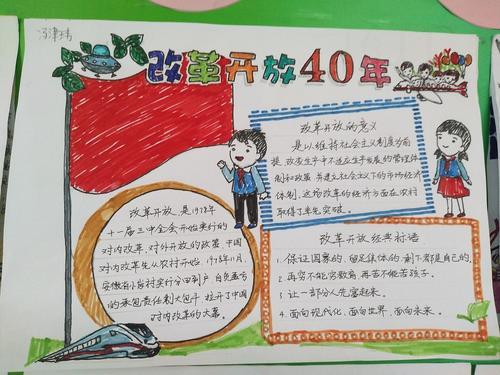 冯津玮
改革开放40年
改革开放的意义
是以维持社会主义制度为前
提,改变生产中不适应生产发展的管理体
制和政策,并建立社会主义下的市场经济
体制,这场改革的经济方面在农村
取得了率先突破。
改革开放,是1978年
十一届三中全会开始实行的
对内改革,对外开放的政策,中国
对内改革先从农村开始,1978年11月,
安徽省小岗村实行分田到户,自负盈亏
的承包责任制大包干,拉开了中国
对内改革的大幕。
改革开放经典标语
1.保证国家的,留足集体的,剩下都是自己的。
2.再穷不能穷教育,再苦不能苦孩子。
3.让一部分人先富起来。
4.面向现代化,面向世界,面向未来。